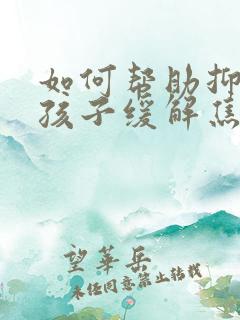 如何帮助抑
孩子缓解焦
望华岳
未经同意禁止转载